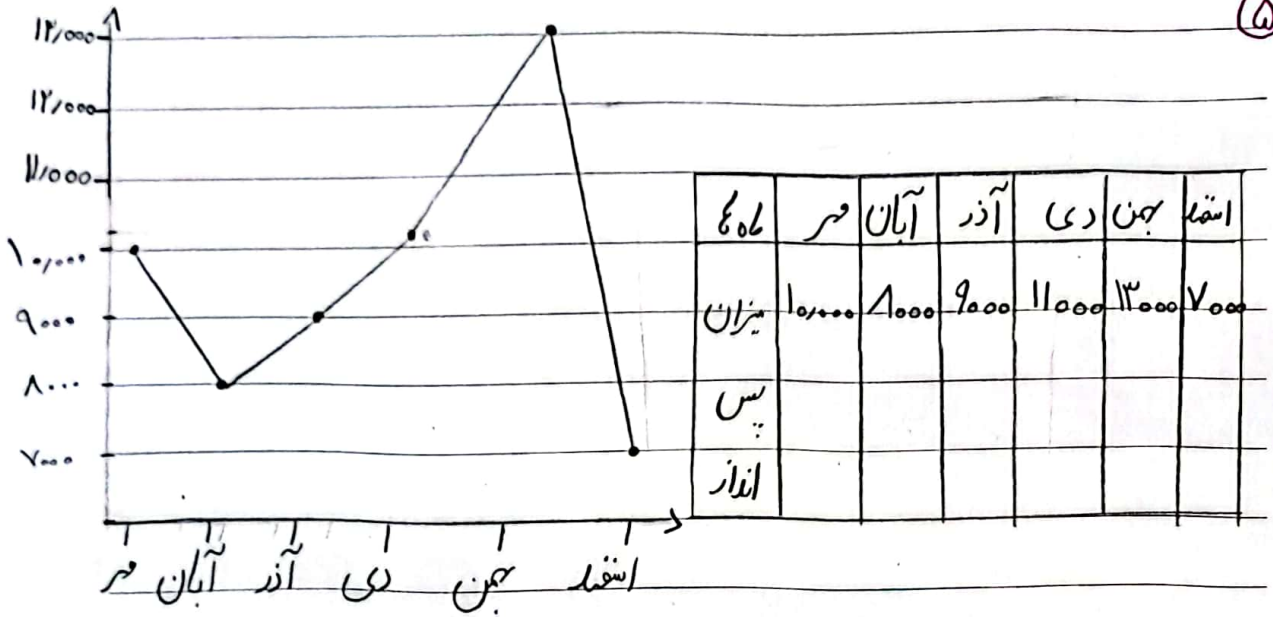 ۵
۱۳٫۰۰۰
۱۲٫۰۰۰
۱۱٫۰۰۰
۱۰٫۰۰۰
۹۰۰۰
۸۰۰۰
۷۰۰۰
مهر آبان آذر دی بهمن اسفند
ماه ها مهر آبان آذر دی بهمن اسفند
میزان ۱۰٫۰۰۰ ۸۰۰۰ ۹۰۰۰ ۱۱۰۰۰ ۱۳۰۰۰ ۷۰۰۰
پس
انداز